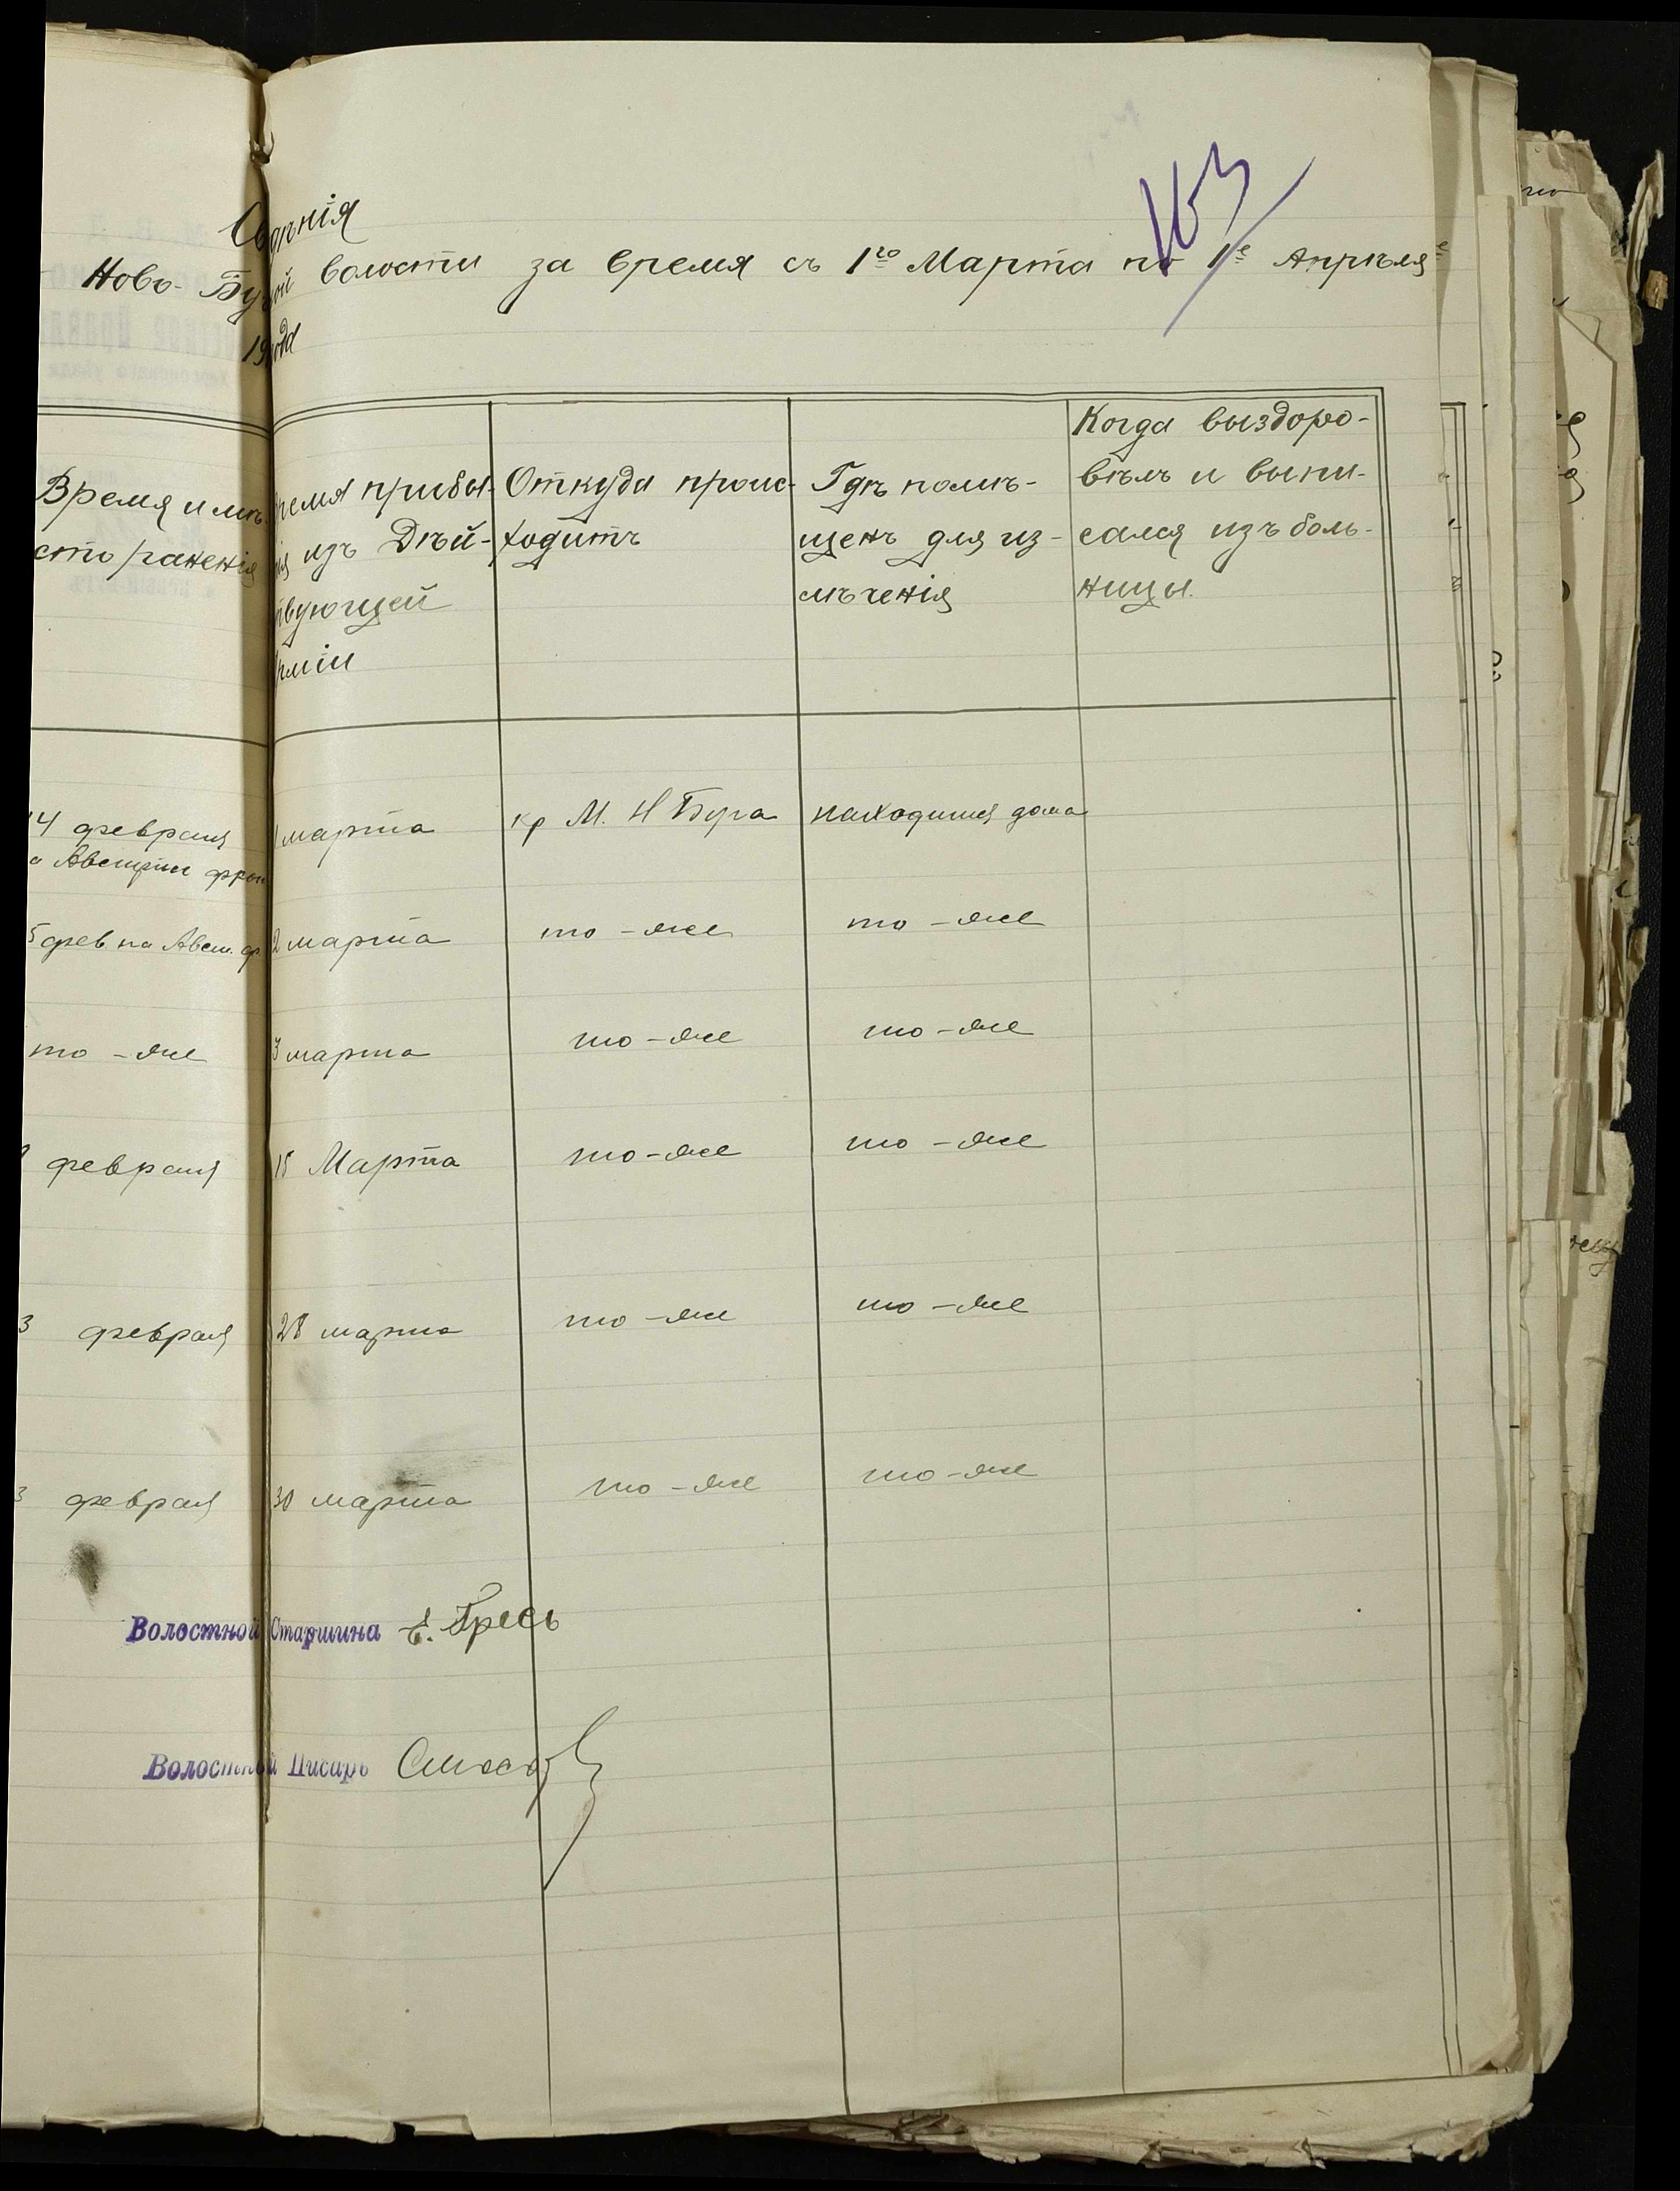 163
Свѣдѣнія
Ново-Бугской волости за время съ 1го Марта по 1е Апрѣля
19 года
Время и мѣ-
сто раненія
ремя прибы-
ія изъ Дѣй-
твующей
рміи
Откуда проис-
ходитъ
Гдѣ помѣ-
щенъ для из-
лѣченія
Когда выздоро-
вѣлъ и выпи-
сался изъ боль-
ницы.
14 февраля 1 марта кр М. Н Буга находится дома
а Австрійс фрон
5 фев. на Авст. фр 2 марта то-же то-же
то-же 3 марта то-же то-же
февраля 15 Марта то-же то-же
3 февраля 28 марта то-же то-же
3 февраля 30 марта то-же то-же
Волостной Старшина Е. Гресь
Волостной Писарь